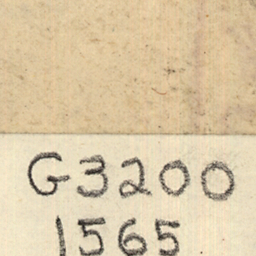 G3200
1565